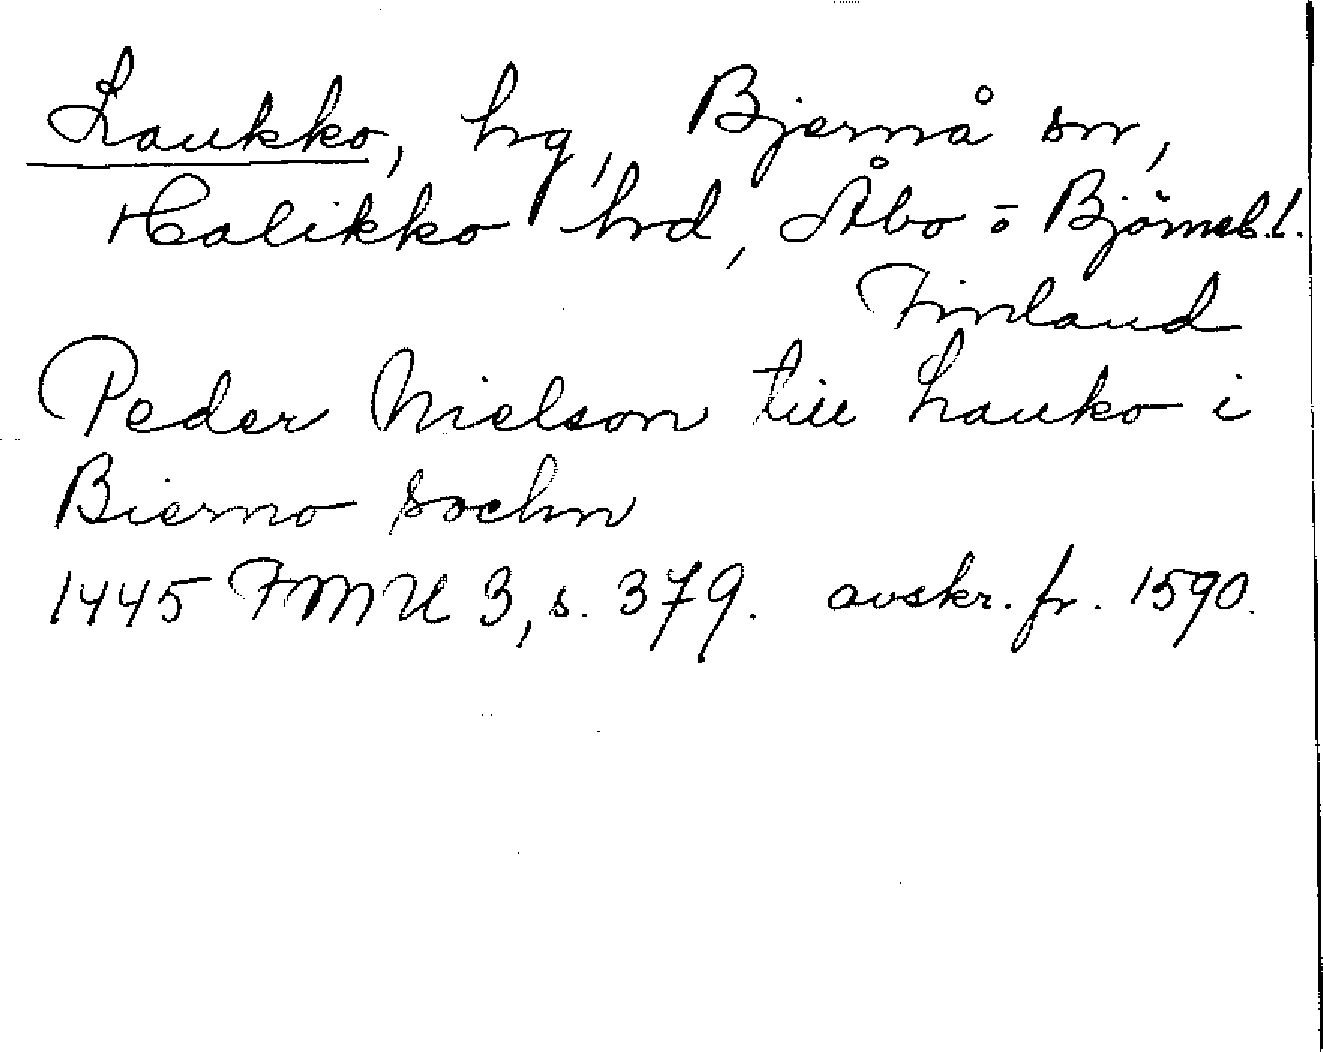 Laukko, hg, Bjernå sn,
Halikko hrd, Åbo o Björneb.l.
Finland
Peder Nielson till Lauko i
Bierno sochn
1445 FMU 3, s. 379. avskr. fr. 1590.